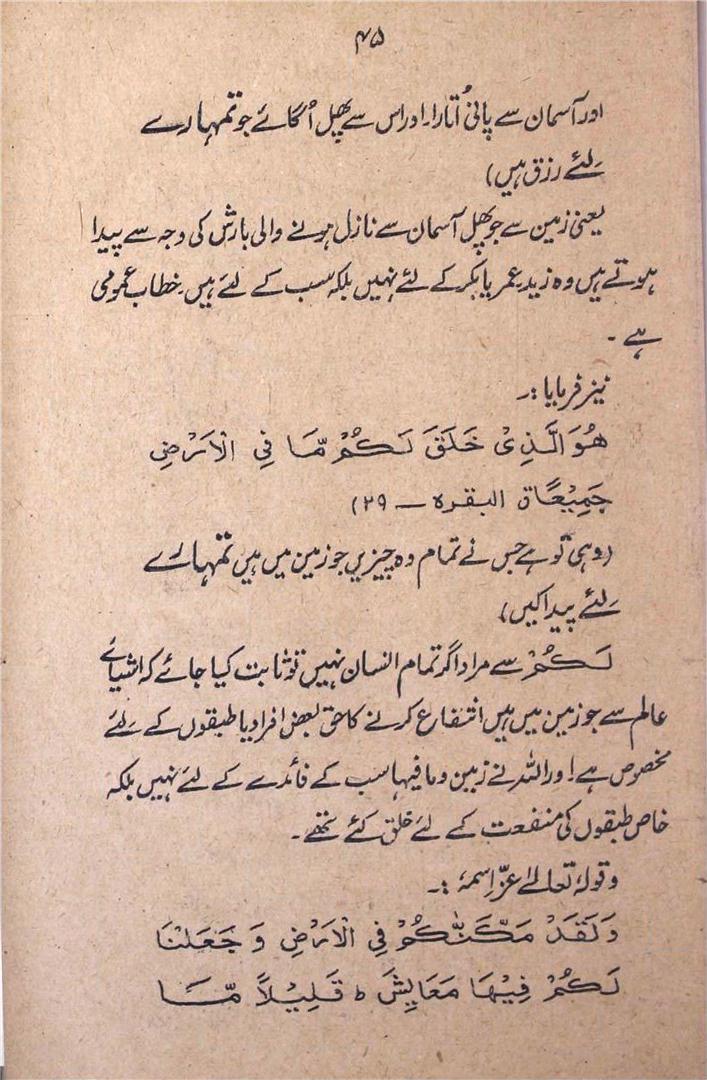 ۴۵
اور آسمان سے پانی اُتارا۔ اور اس سے پھل اُگائے جو تمہارے
لئے رزق ہیں)
یعنی زمین سے جو پھل آسمان سے نازل ہونے والی بارش کی وجہ سے پیدا
ہوتے ہیں وہ زید عمر یا بکر کے لئے نہیں بلکہ سب کے لئے ہیں۔ خطاب عمومی
ہے ۔
نیز فرمایا :۔
هُوَ الَّذِیْ خَلَقَ لَکُمْ مَّا فِی الْاَرْضِ
جَمِیْعًا ق البقرہ ــ ۲۹)
(وہی تو ہے جس نے تمام وہ چیزیں جو زمین میں ہیں تمہارے
لئے پیدا کیں)
لَکُمْ سے مراد اگر تمام انسان نہیں تو ثابت کیا جائے کہ اشیائے
عالم سے جو زمین میں ہیں انتفاع کرنے کا حق بعض افراد یا طبقوں کے لئے
مخصوص ہے! اور اللہ نے زمین و مافیہا سب کے فائدے کے لئے نہیں بلکہ
خاص طبقوں کی منفعت کے لئے خلق کئے تھے ۔
وقولہٗ تعالےٰ عزّ اسمہٗ :۔
وَلَقَدْ مَکَّنّٰکُمْ فِی الْاَرْضِ وَ جَعَلْنَا
لَکُمْ فِیْهَا مَعَایِشَ ط قَلِیْلًا مَّا